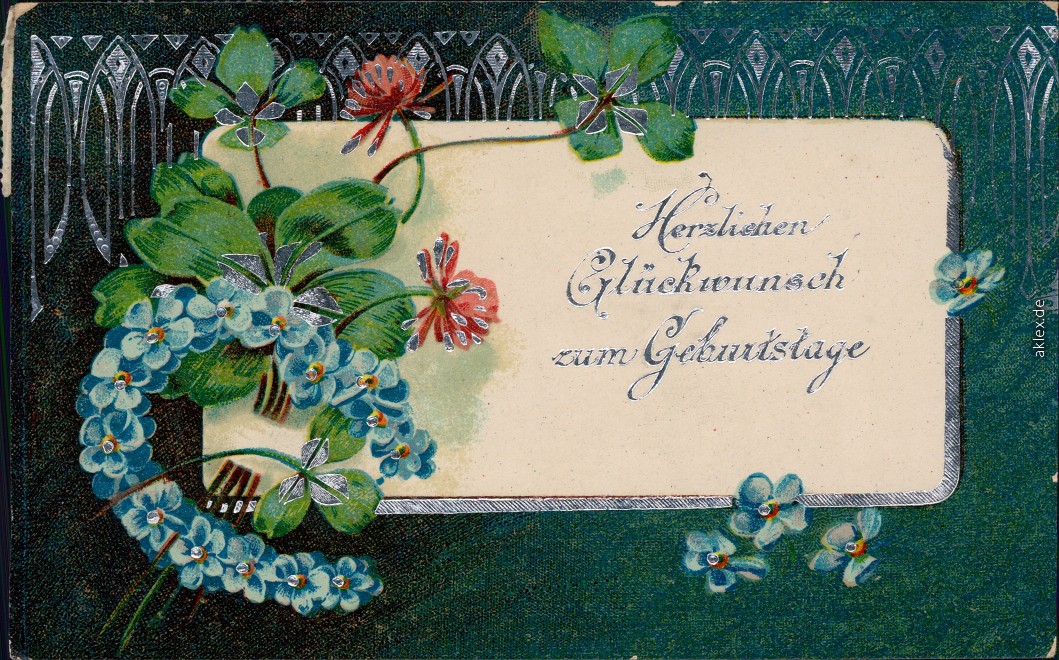 Herzlichen
Glückwunsch
zum Geburtstage
aklex.de